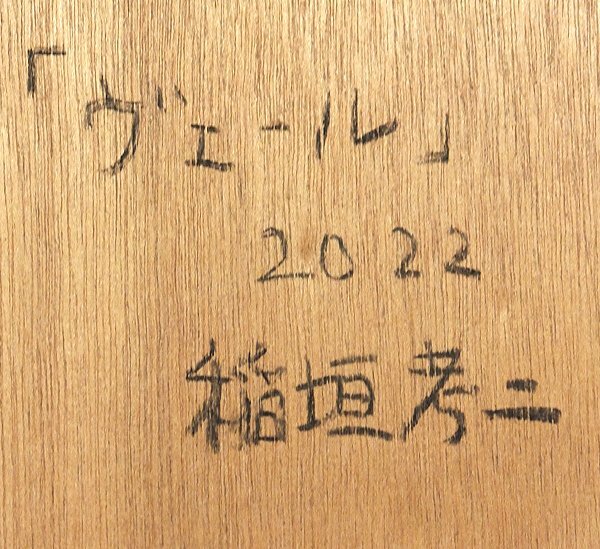 「ヴェール」
2022
稲垣考二